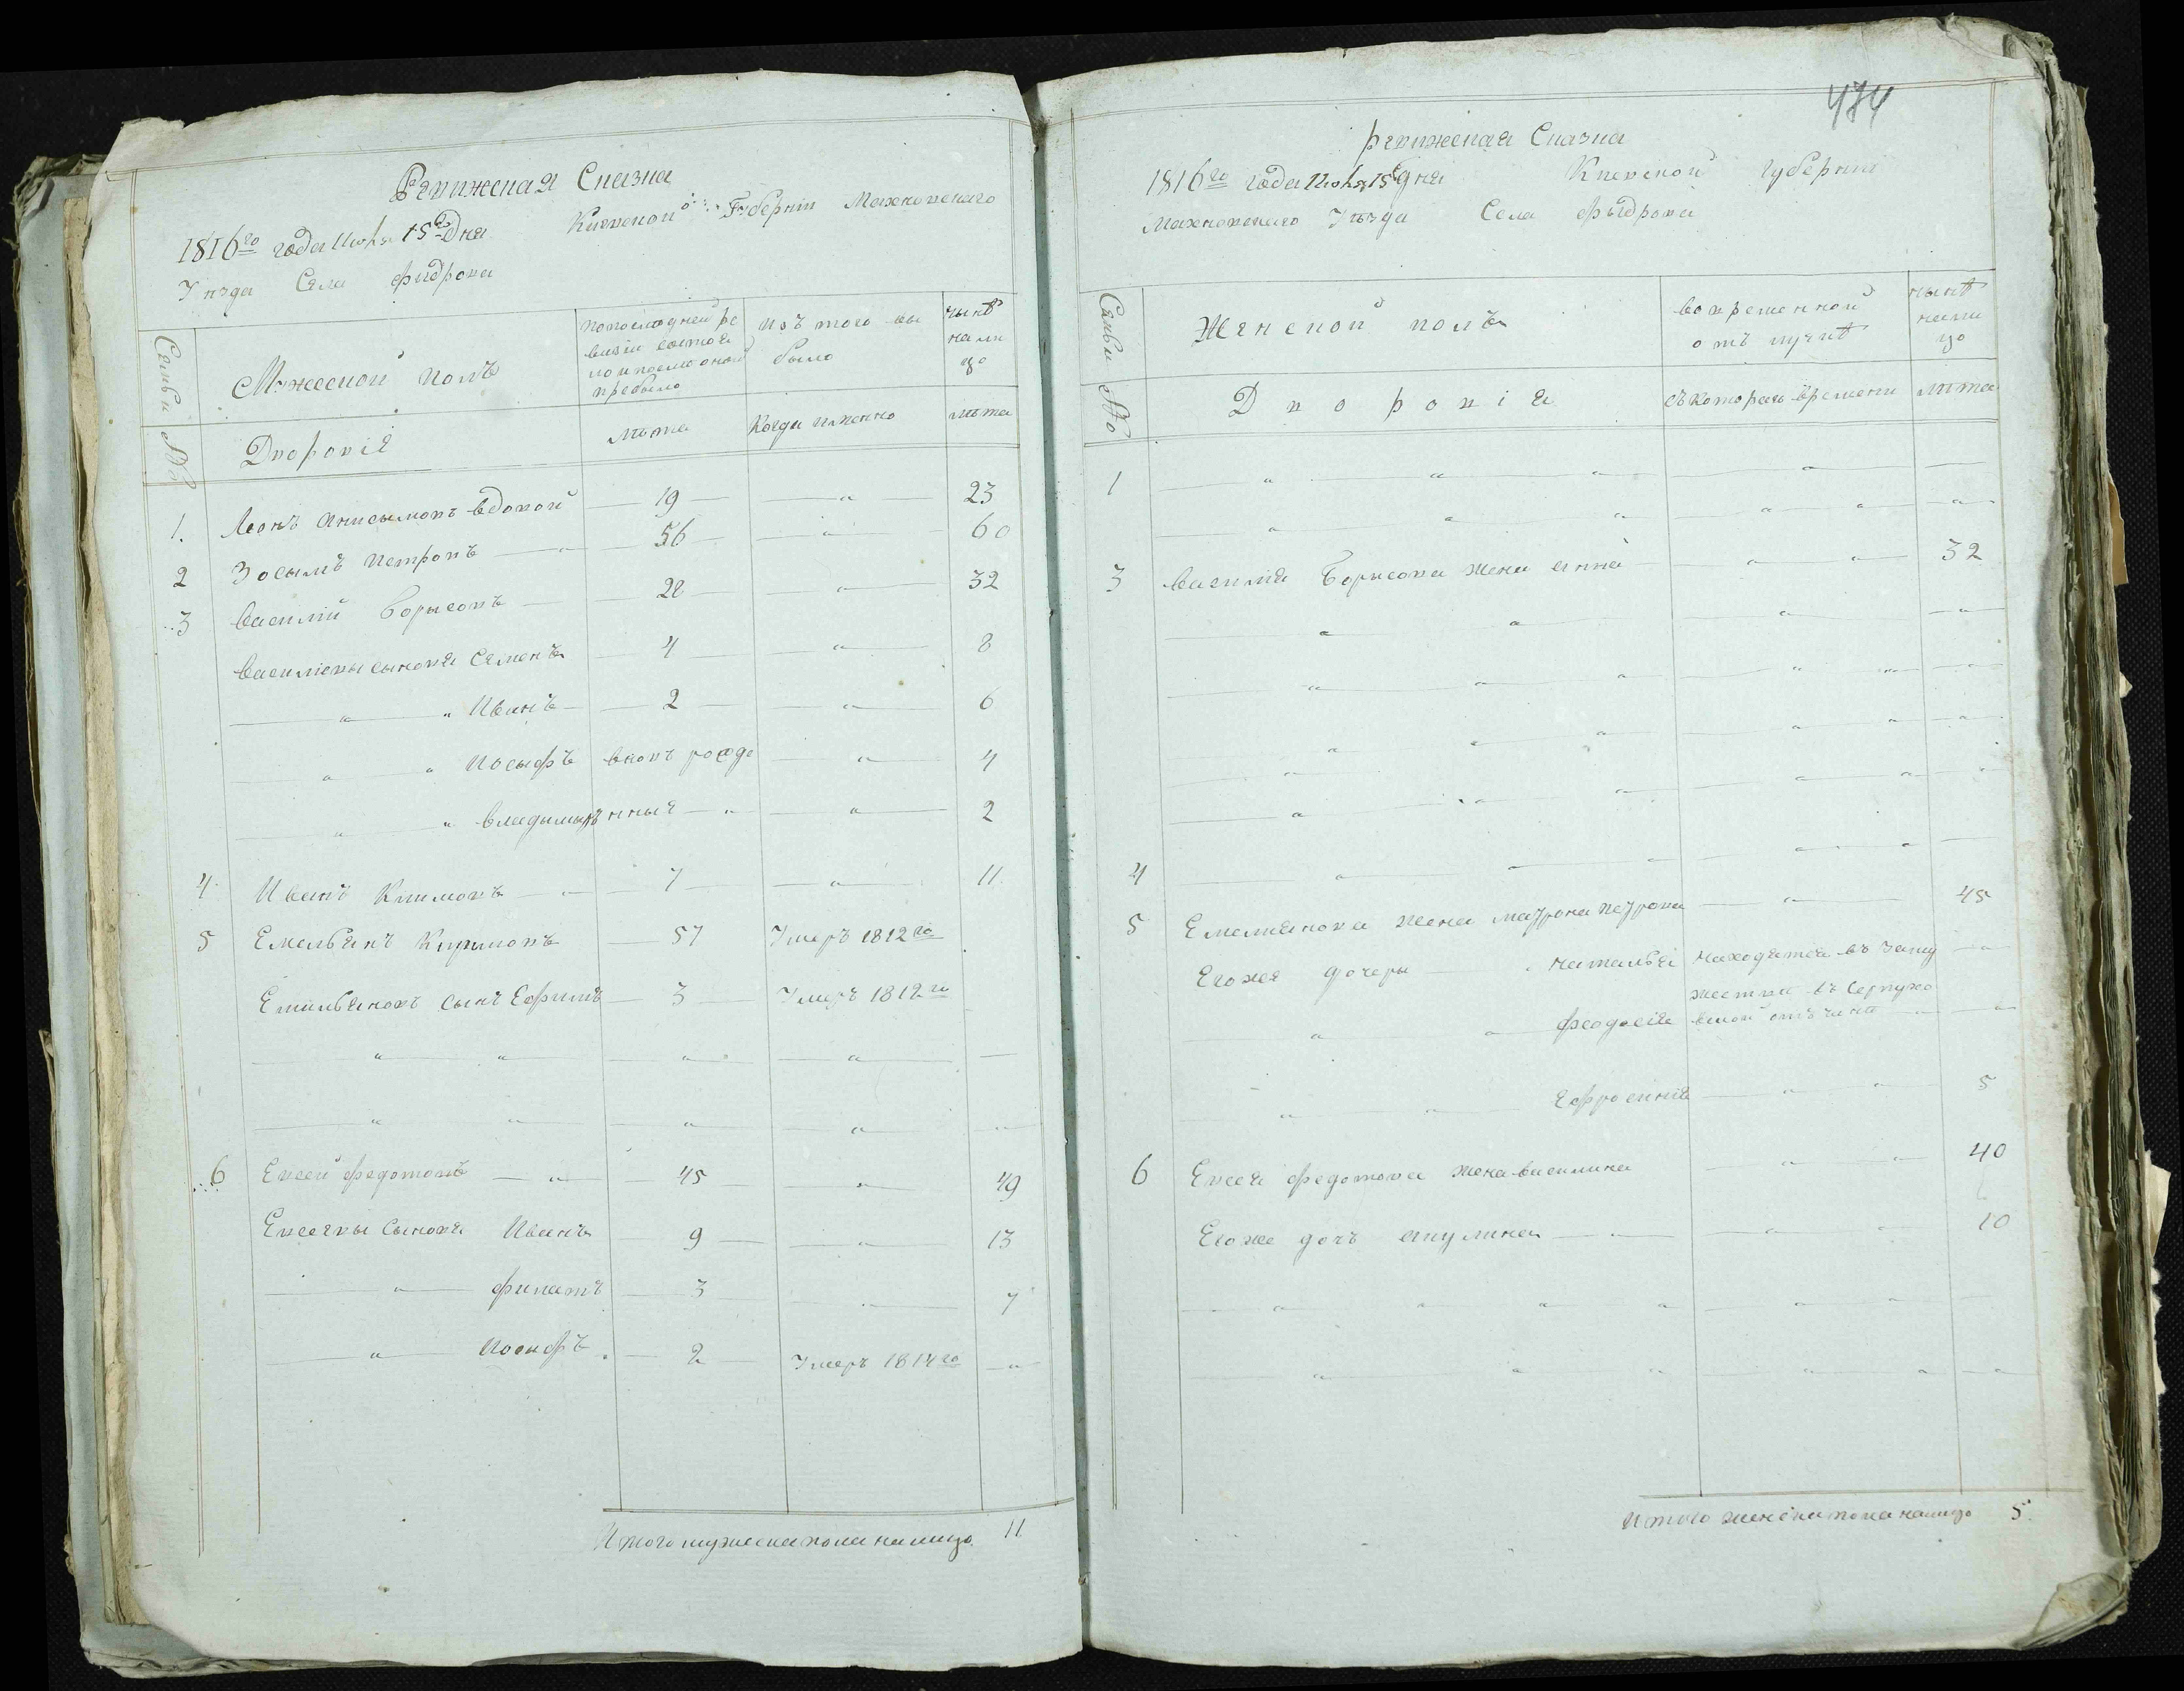 Ревижеская Сказка
1816го года Июля 15го Дня Киевской Губернiи Махновскаго
Уезда Села Фидрова
Семьи №о
Мужеской полъ
попоследней ре
визiи состоя
ло и после оной
прибыло
Изъ того вы
было
нынѣ
нали
цо
Дворовiя
лѣта
Когда именно
лѣта
1. Леонъ Анисымовъ вдовой 19 23
2 Зосымъ Петровъ 56 60
3 Василiй Борысовъ 28 32
Василiевы сыновя Семенъ 4 8
Иванъ 2 6
Иосыфъ вновъ рожде 4
Владымыръ нныя 2
4 Иванъ Климовъ 7 11
5 Емельянъ Кириловъ 57 Умеръ 1812го
Емильяновъ сынъ Ефимъ 3 Умеръ 1812го
6 Евсей Федотовъ 45 49
Евсеевы сыновя Иванъ 9 13
Филатъ 3 7
Иосифъ 2 Умеръ 1814го
Итого мужеска пола налицо 11
474
Ревижеская Сказка
1816го года Июля 15го дня Киевской Губернiи
Махновскаго Уезда Села Фыдрова
Семьи №о
Женской полъ
во временной
отлучкѣ
нынѣ
нали
цо
Дворовiя
съ котораго времени
лѣта
1
3 Василiя Борысова жена Анна 32
4
5 Емелиянова жена Матрона Петрова 45
Егожя дочеры Наталья находятся въ заму
жестви въ Серпухо
Феодосiя
Ефросинiя 5
6 Евсея Федотова жена Василина 40
Егоже дочъ Акулина 10
Итого женска пола налицо 5.